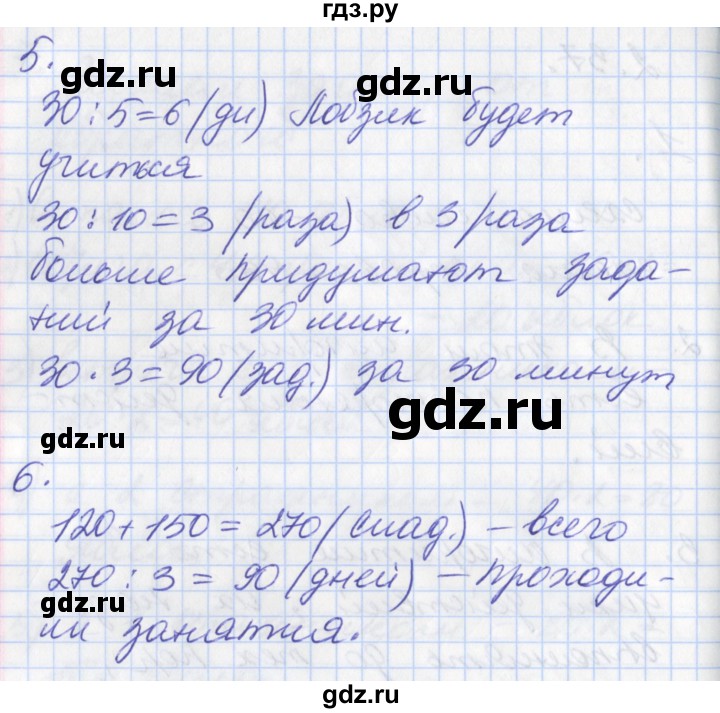 гдз.ру
5.
gdz.ru gdz.ru
30 : 5 = 6 (дн) Лобзик будет
учиться
gdz.ru gdz.ru
30 : 10 = 3 (раза) в 3 раза
больше придумают зада-
ний за 30 мин.
gdz.ru
30 · 3 = 90 (зад.) за 30 минут
gdz.ru
gdz.ru
6.
gdz.ru
120 + 150 = 270 (слад.) – всего
270 : 3 = 90 (дней) – проходи-
gdz.ru gdz.ru
ли занятия.
gdz.ru